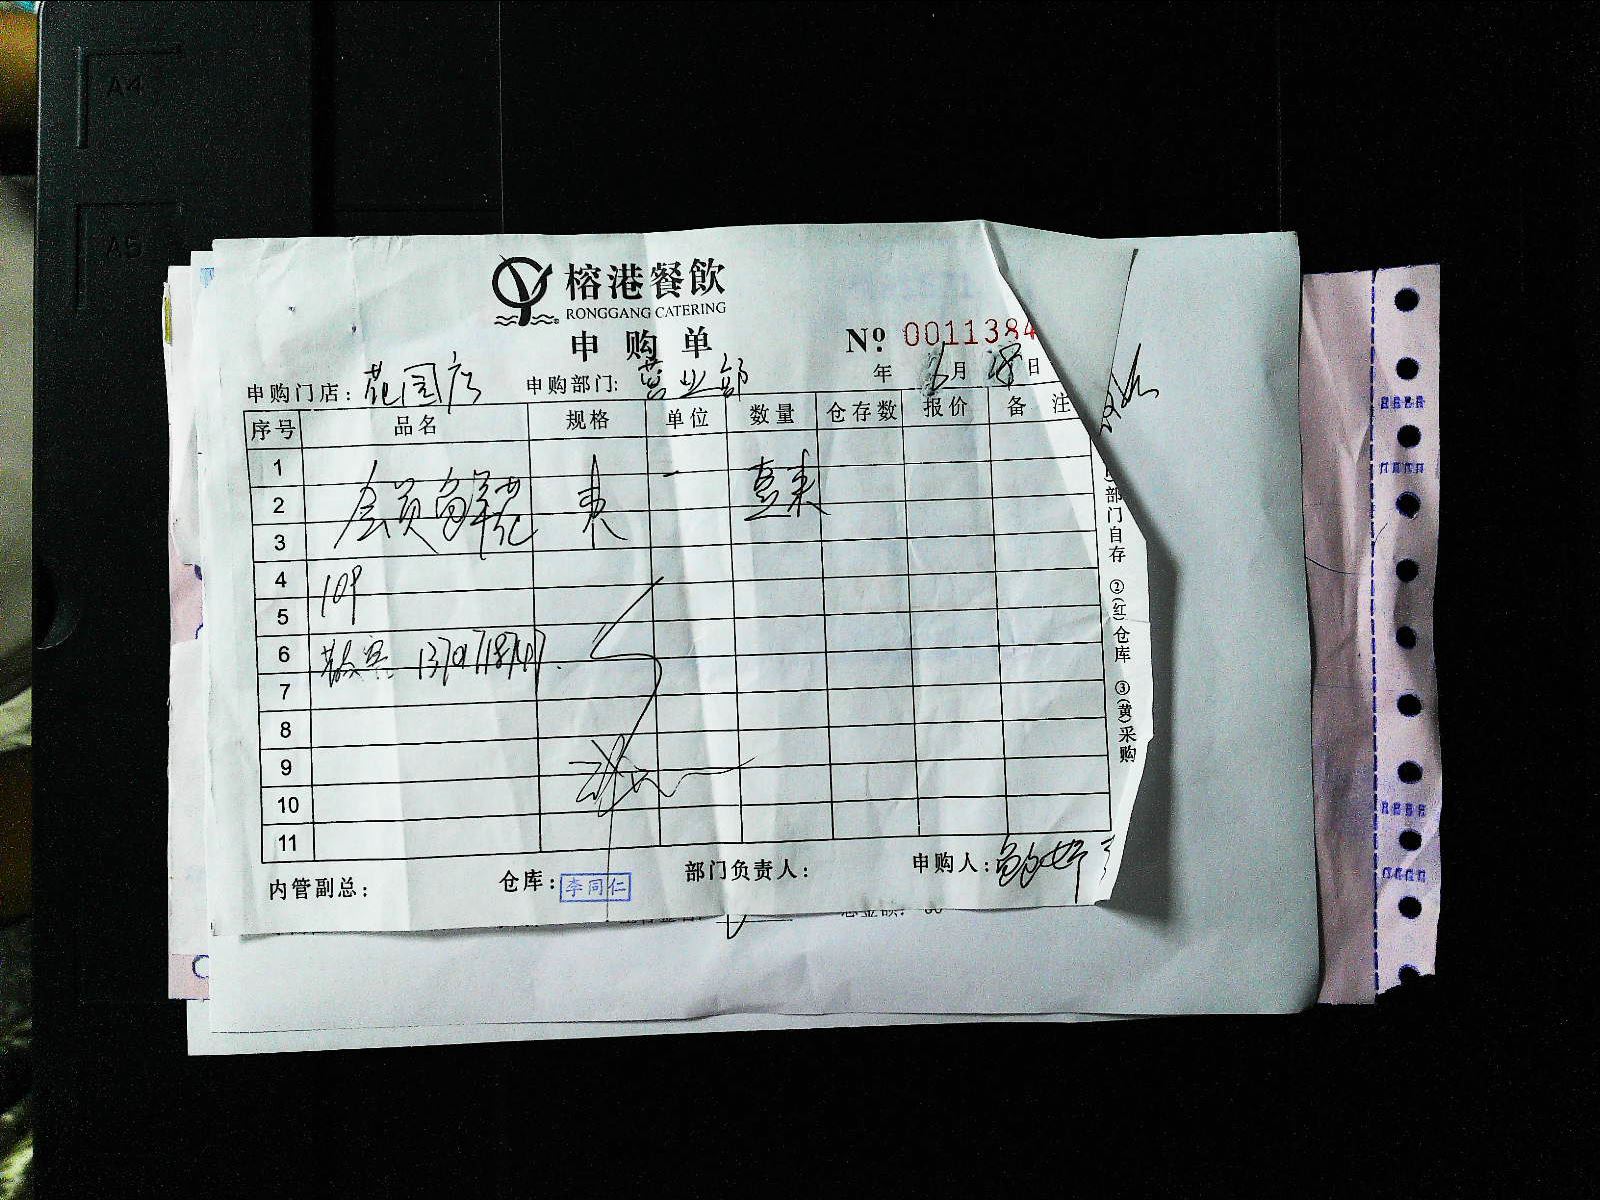 A4
A5
榕港餐飲
RONGGANG CATERING
申购单
№ 0011384
年 6月 28日
申购门店：花园店 申购部门：营业部
序号 品名 规格 单位 数量 仓存数 报价 备注
1
2 会员鲜花 束 一 壹束
3
4 109
5
6 散客
7
8
9
10
11
部门自存 ②(红)仓库 ③(黄)采购
内管副总： 仓库：李同仁 部门负责人： 申购人：
总金额：